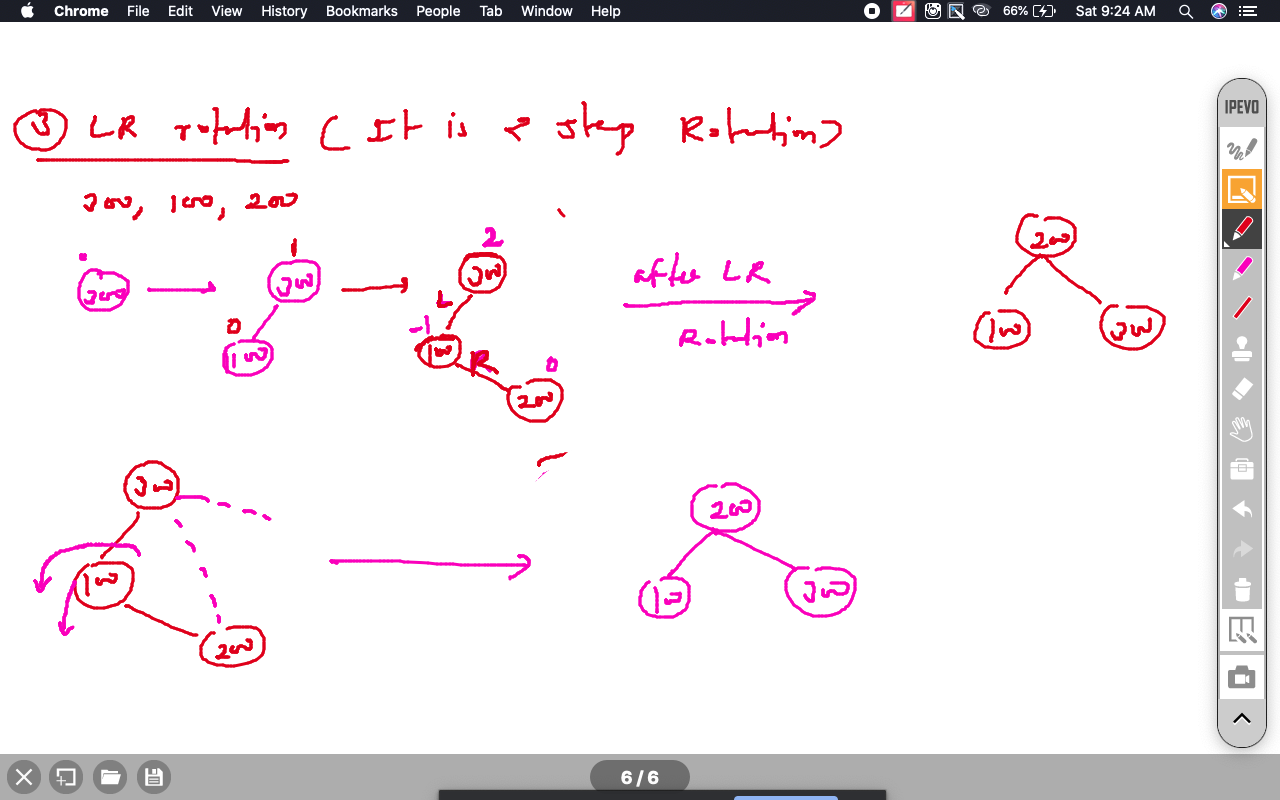 Chrome File Edit View History Bookmarks People Tab Window Help 66% Sat 9:24 AM
IPEVO
3 LR rotation ( It is 2 step Rotation)
300, 100, 200
300
1
300
0
100
2
300
L
-1
100
R
0
200
after LR
Rotation
200
100 300
300
100
200
200
100 300
6 / 6